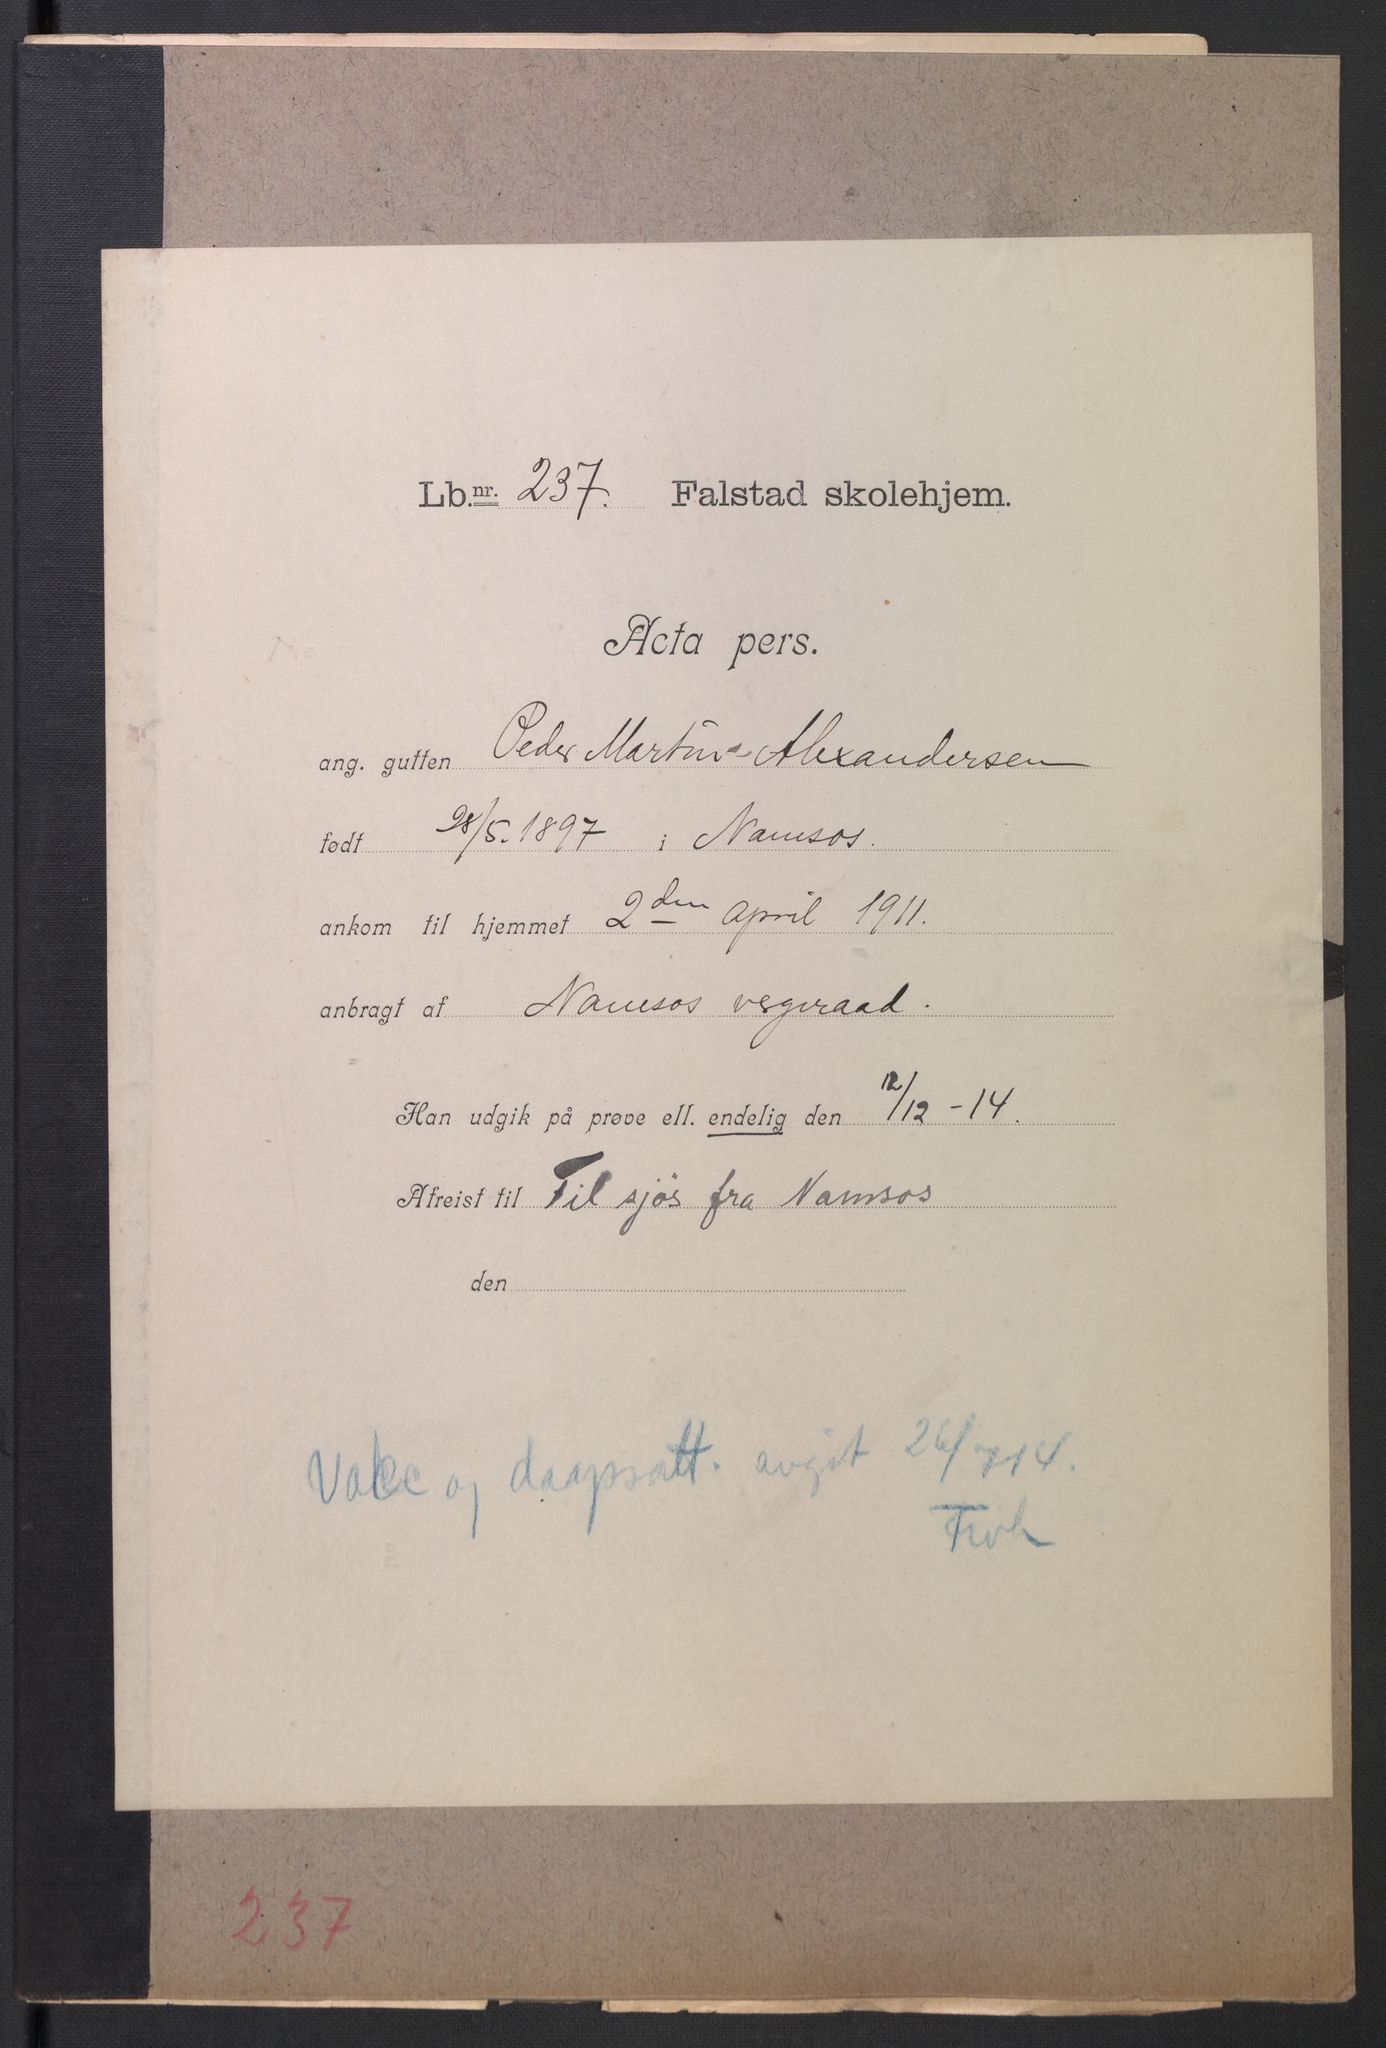 Lb.nr. 237. Falstad skolehjem.
Acta pers.
ang. gutten Peder Martin Alexandersen
født 28/5. 1897 i Namsos.
ankom til hjemmet 2den april 1911.
anbragt af Namsos vergeraad.
Han udgik på prøve ell. endelig den 12/12 - 14.
Afreist til Til sjös fra Namsos
den
Vakc og daapsatt. avgit 26/ 14.
237